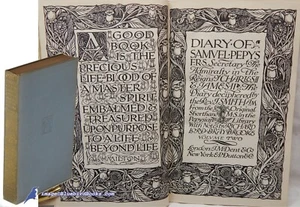 A GOOD
BOOK IS
THE PRECIOUS
LIFE-BLOOD OF
A MASTER
SPIRIT
EMBALMED &
TREASURED
UPON PURPOSE
TO A LIFE
BEYOND LIFE
MILTON
DIARY OF
SAMVEL PEPY
ERS Secretary
Admiralty in the
Reign of CHARLES II
& JAMES II The
Diary deciphered by
the Rev. J. SMITH M.A.
from the Original
Shorthand MS in the
Pepysian Library
VOLUME TWO
London: J.M. Dent & Co
New York: E.P. Dutton & Co